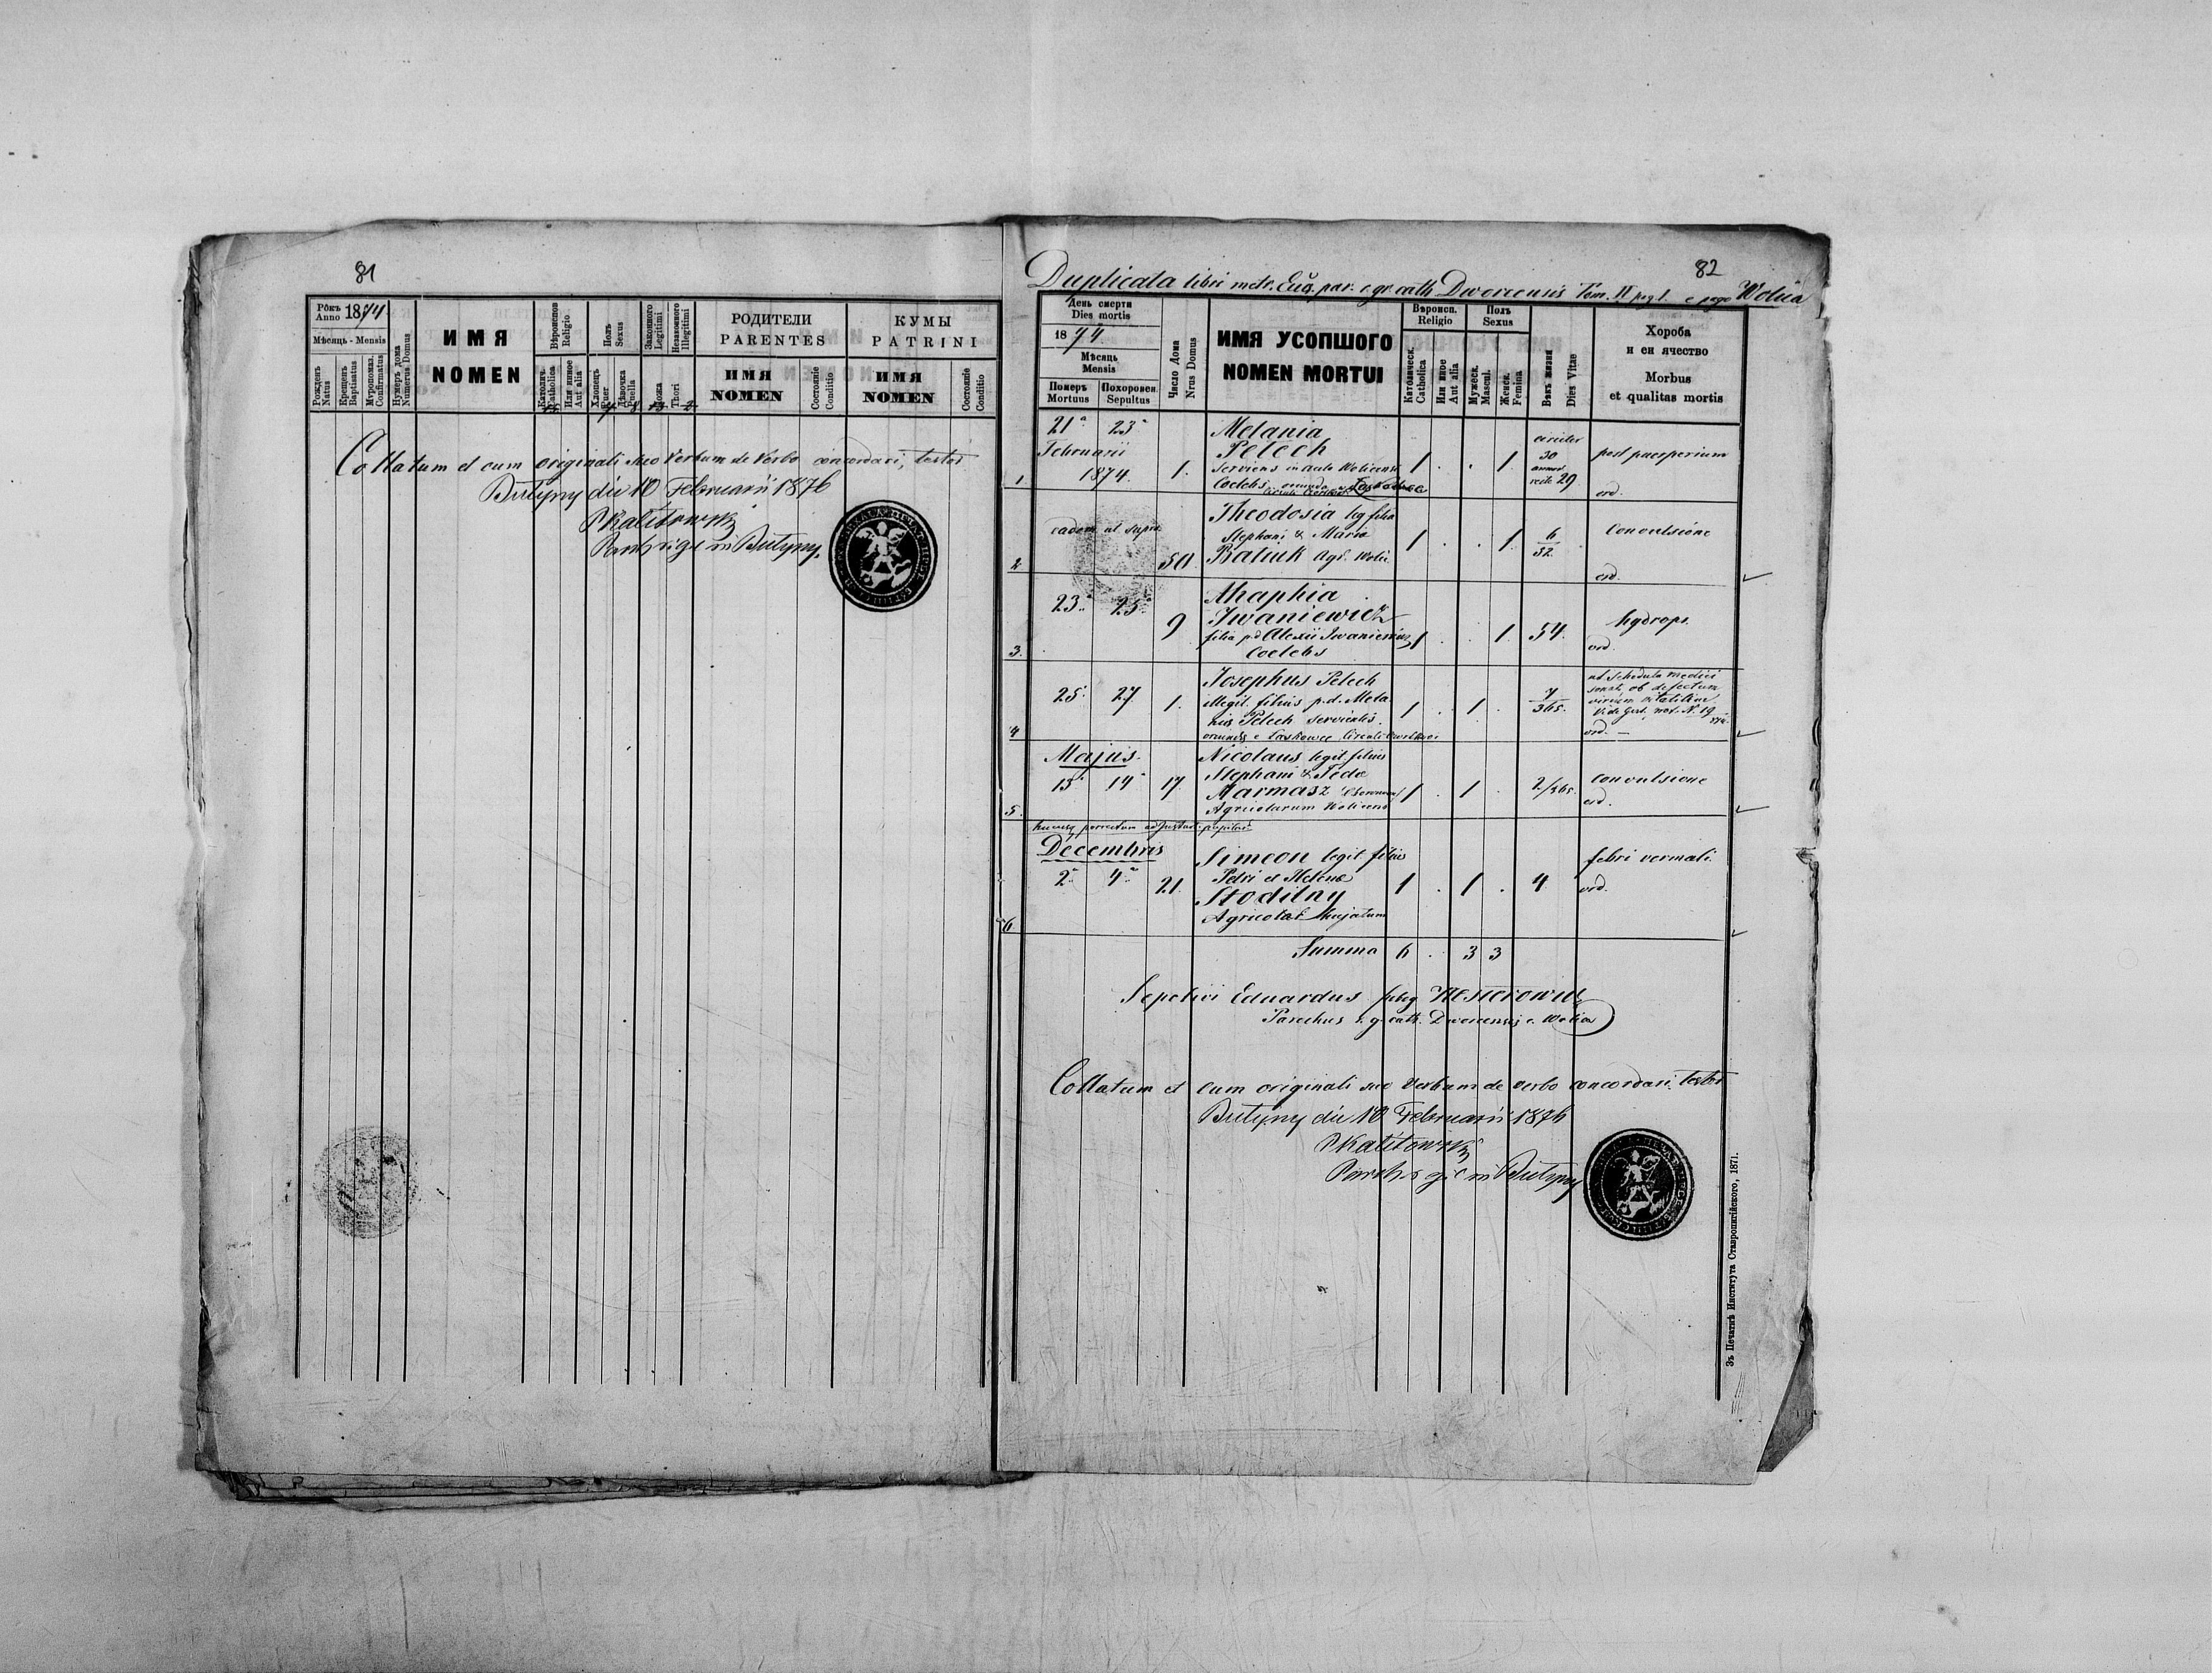 81
Рôкъ Anno 1874
Мѣсяць - Mensis
Рожденъ Natus
Крещенъ Baptisatus
Муропомаз. Confirmatus
Нумеръ дома Numerus Domus
ИМЯ
NOMEN
Вѣроисповѣд. Religio
Католич. Catholica
Или инное Aut alia
Полъ Sexus
Хлопець Puer
Дѣвочка Puella
Законного Legitimi
Незаконного Illegitimi
Ложа
Thori
РОДИТЕЛИ
PARENTES
ИМЯ
NOMEN
Состоянiе
Conditio
КУМЫ
PATRINI
ИМЯ
NOMEN
Состоянiе
Conditio
Collatum et cum originali suo verbum de verbo concordari, testor
Butyny die 10 Februarii 1876
Paroch r. g. c. in Butyny.
82
Duplicata libri metr. par. r. gr. cath Dworcensis Tom. II pag 1. e pago Wolica
День смерти
Dies mortis
1874.
Мѣсяць
Mensis
Померъ
Mortuus
Похоронен.
Sepultus
Число Дома
Nrus Domus
ИМЯ УСОПШОГО
NOMEN MORTUI
Вѣроисп.
Religio
Католическ.
Catholica
Или иное
Aut alia
Полъ
Sexus
Мужеск.
Mascul.
Женск.
Femina
Вѣкъ жизни
Dies Vitae
Хороба
и еи ячество
Morbus
et qualitas mortis
1 21a 23a Februarii 1874. 1. Melania
Petech
serviens in aula Wolicensi
Coelebs
1 . . 1 circiter 30 annor recte 29 post puerperium
ord.
2 eadem ut supra 50 Theodosia leg filia
Stephani & Maria
Baliuk Agr. Wolic.
1 . . 1 6/52 Convulsione
ord.
3. 23a 25a 9 Ahaphia
Iwaniewicz
filia p.d Alexii Iwaniewicz
Coelebs
1 . . 1 54. hydrops.
ord.
4 25. 27 1. Josephus Petech
illegit. filius p.d. Mela
nia Petech servientis.
1 . 1 . 7/365. ut schedula medici
ob defectum
virium vitalium
Vide Gest. not. N. 19
ord. —
5. Majus.
13a 14a 17. Nicolaus legit. filius
Stephani & Feda
Marmasz
Agricolarum Wolicens
1 . 1 . 2/365. convulsione
ord.
6 Decembris
2a 4a 21. Simeon legit filius
Petri et Helenae
Stodilny
Agricolar.
1 . 1 . 4 febri vermali.
ord.
Summa 6 . 3 3
Sepelivi Eduardus Nesterowicz
Parochus r. g. cath. Dworcensis c. Wolica
Collatum et cum originali suo verbum de verbo concordari. testor
Butyny die 10 Februarii 1876
Paroch r. g. c in Butyny
Зъ Печатнѣ Института Ставропигійского, 1871.